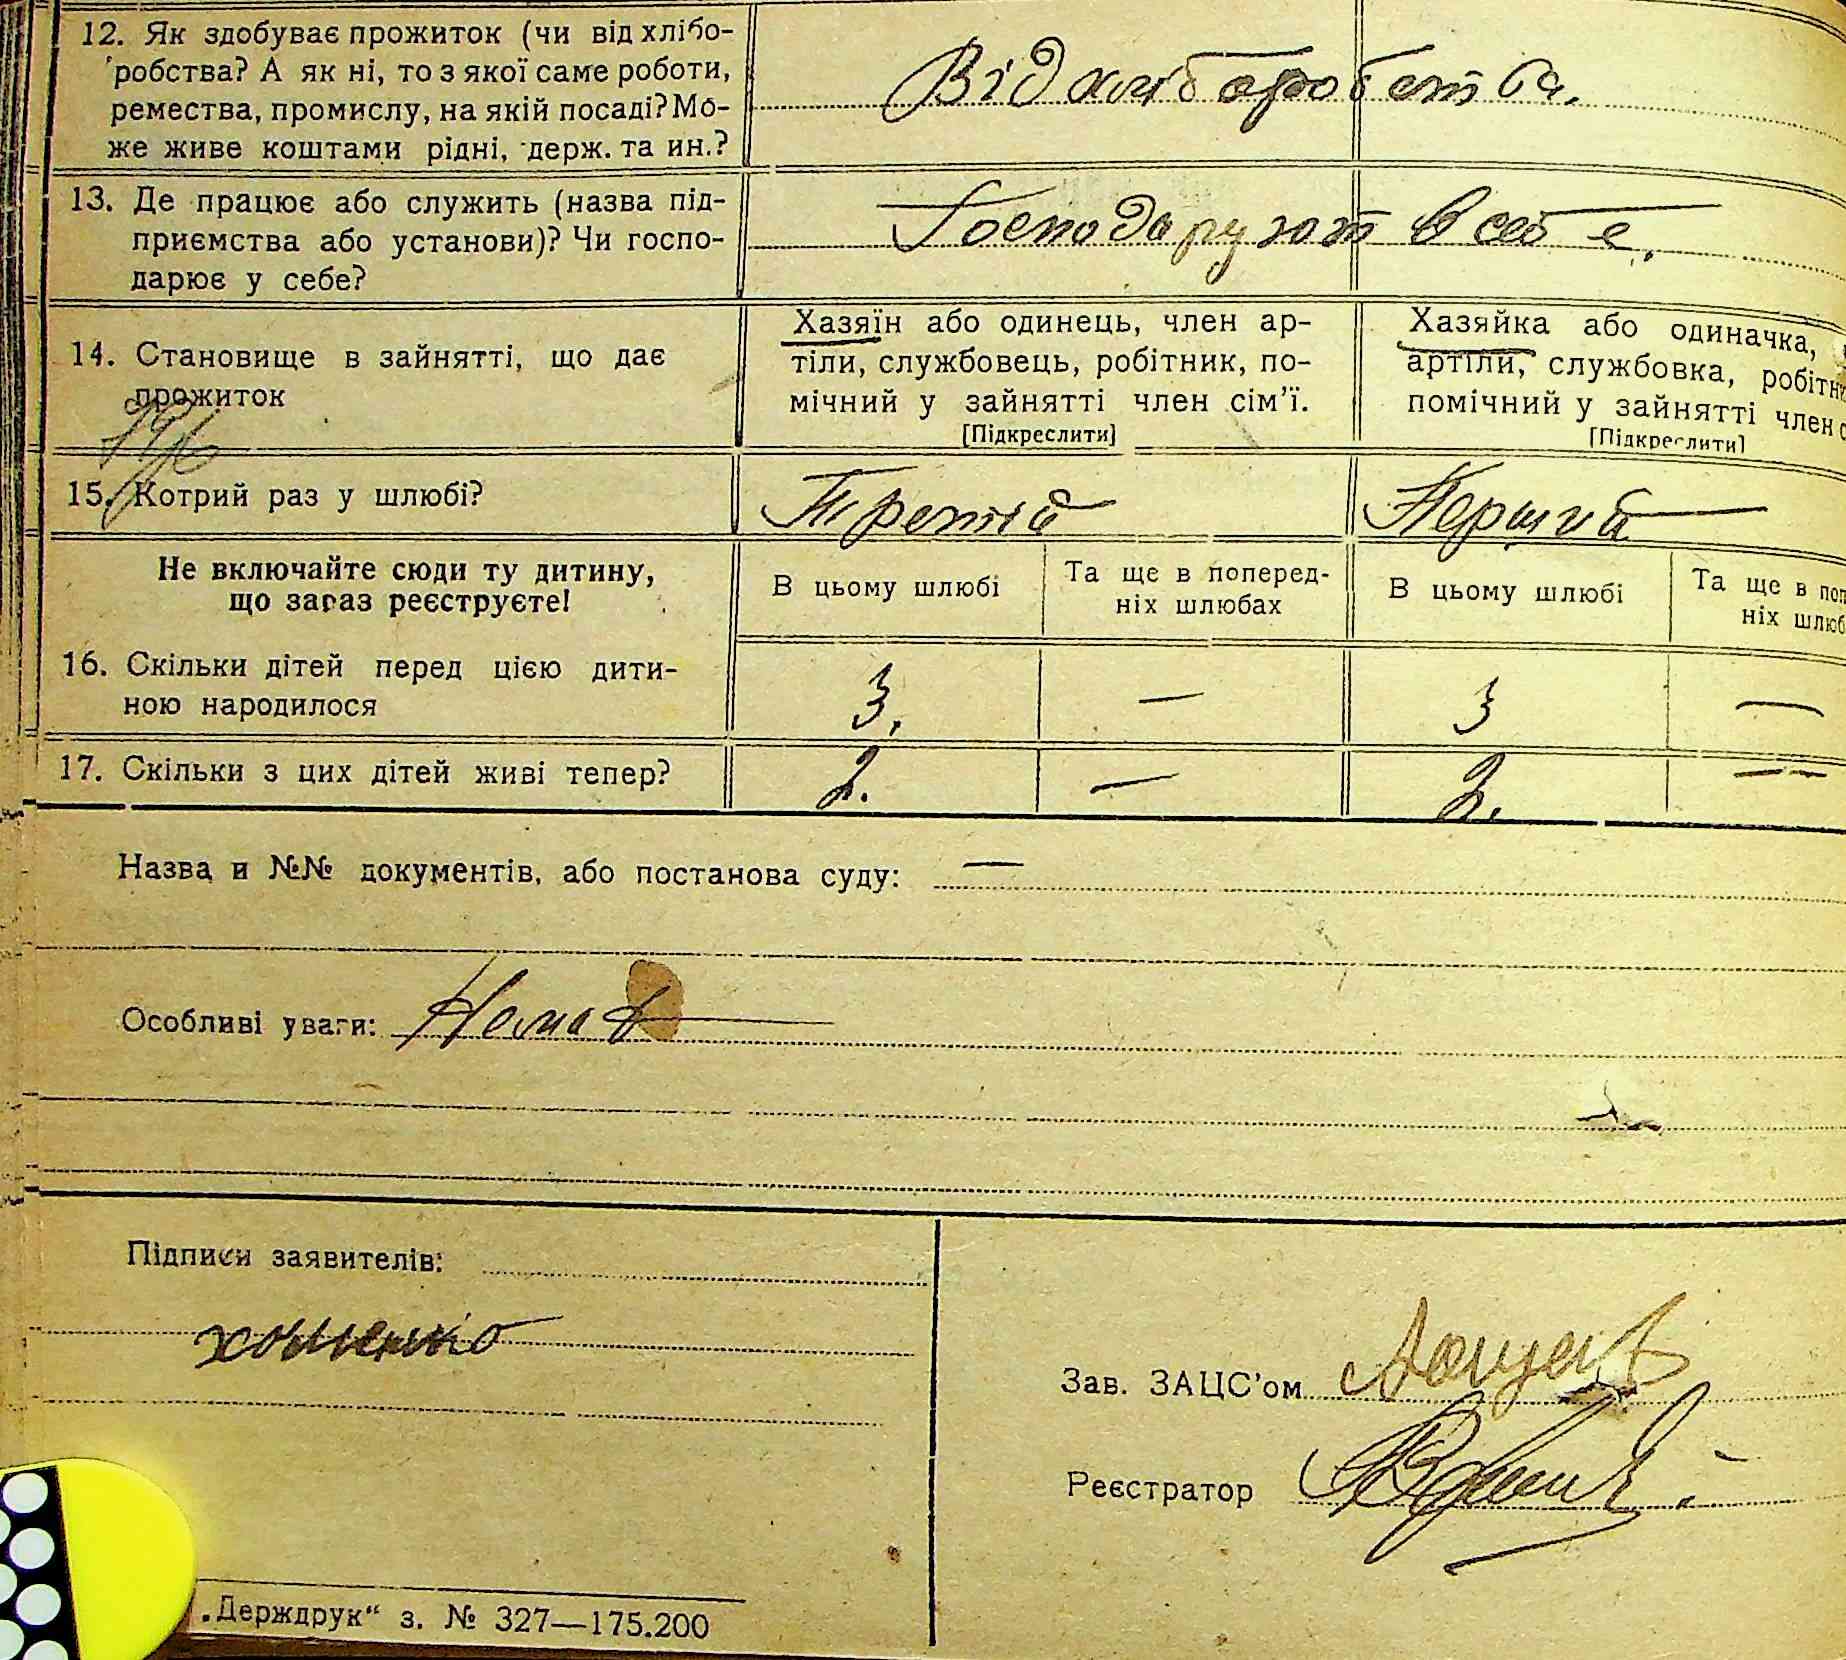 12. Як здобуває прожиток (чи від хлібо-
робства? А як ні, то з якої саме роботи,
ремества, промислу, на якій посаді? Мо-
же живе коштами рідні, держ. та ин.?
Від хліборобства.
13. Де працює або служить (назва під-
приємства або установи)? Чи госпо-
дарює у себе?
Господарузот в себе.
14. Становище в зайнятті, що дає
прожиток
Хазяїн або одинець, член ар-
тіли, службовець, робітник, по-
мічний у зайнятті член сім'ї.
[Підкреслити]
Хазяйка або одиначка,
артіли, службовка, робітн
помічний у зайнятті член с
[Підкреслити]
15. Котрий раз у шлюбі?
Третій
Перший
Не включайте сюди ту дитину,
що зараз реєструєте!
В цьому шлюбі
Та ще в поперед-
ніх шлюбах
В цьому шлюбі
Та ще в поп
ніх шлюб
16. Скільки дітей перед цією дити-
ною народилося
3. — 3 —
17. Скільки з цих дітей живі тепер?
2. — 2. —
Назва и №№ документів, або постанова суду: —
Особливі уваги: Немає
Підписи заявителів:
хоменко
Зав. ЗАЦС'ом
Реєстратор
„Держдрук“ з. № 327—175.200